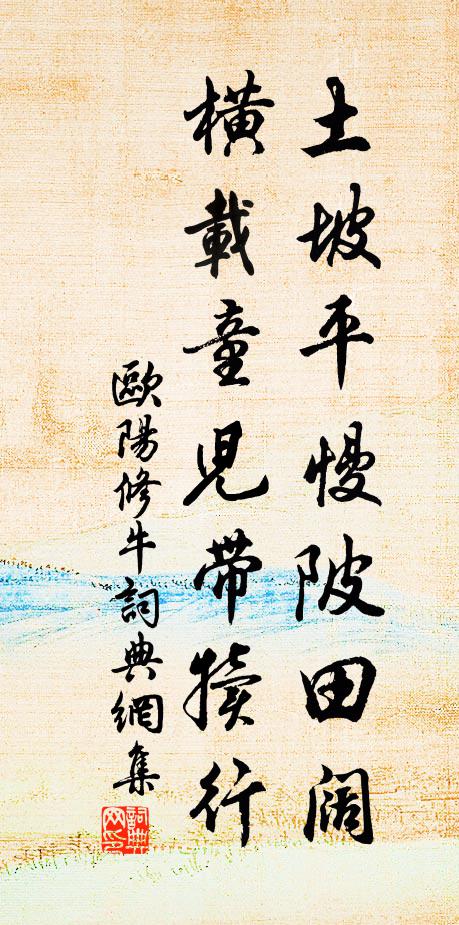 土坡平慢陂田阔
橫載童兒帶犢行
歐陽修牛詞典網集
詞典网印